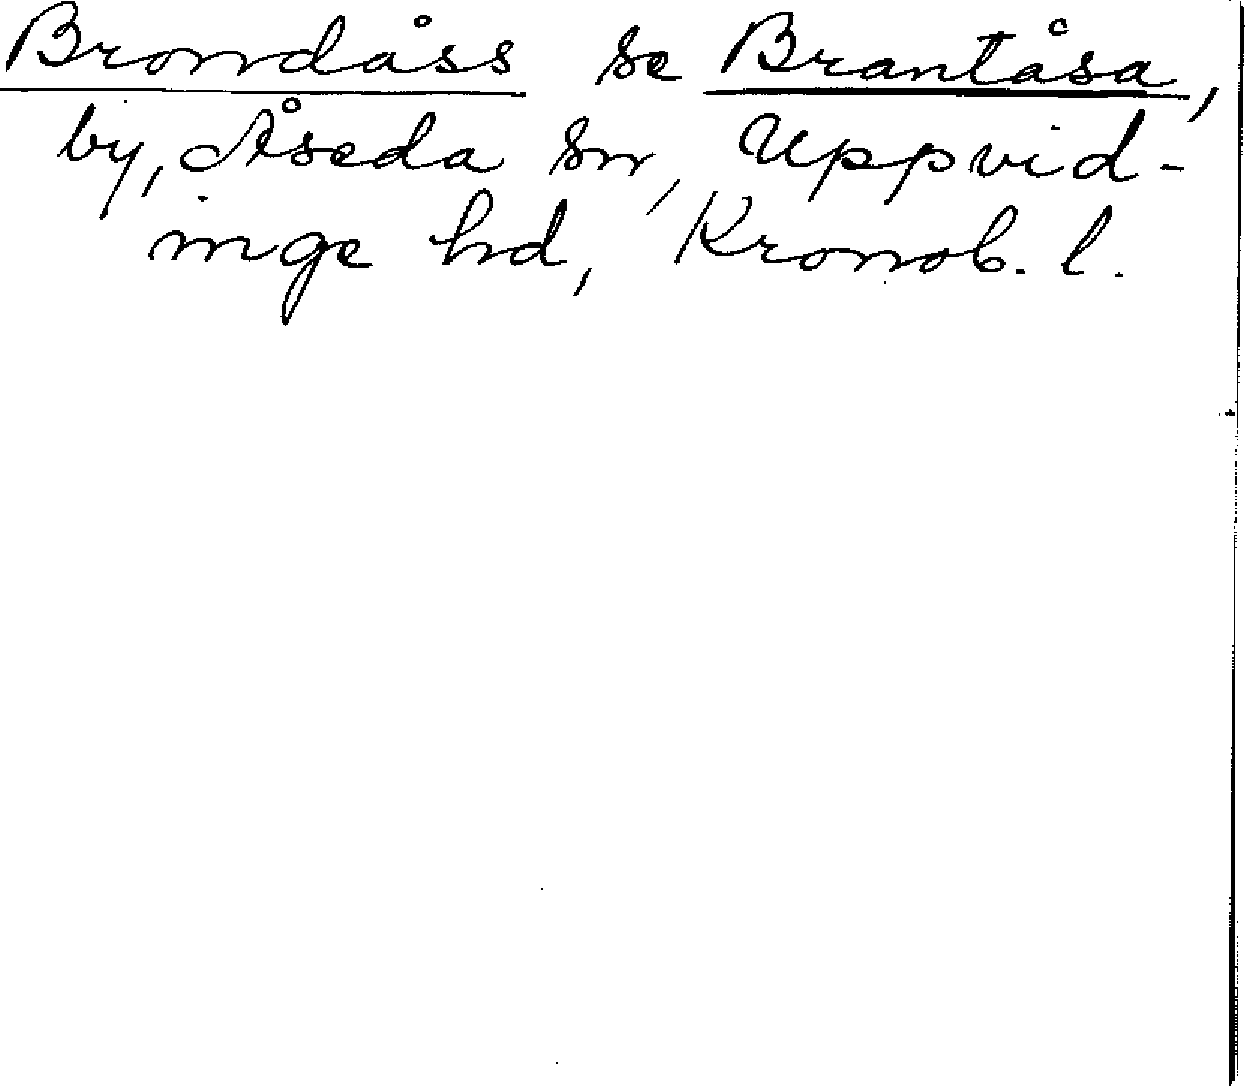 Brondåss se Brantåsa,
by, Åseda sn, Uppvid-
inge hd, Kronob. l.